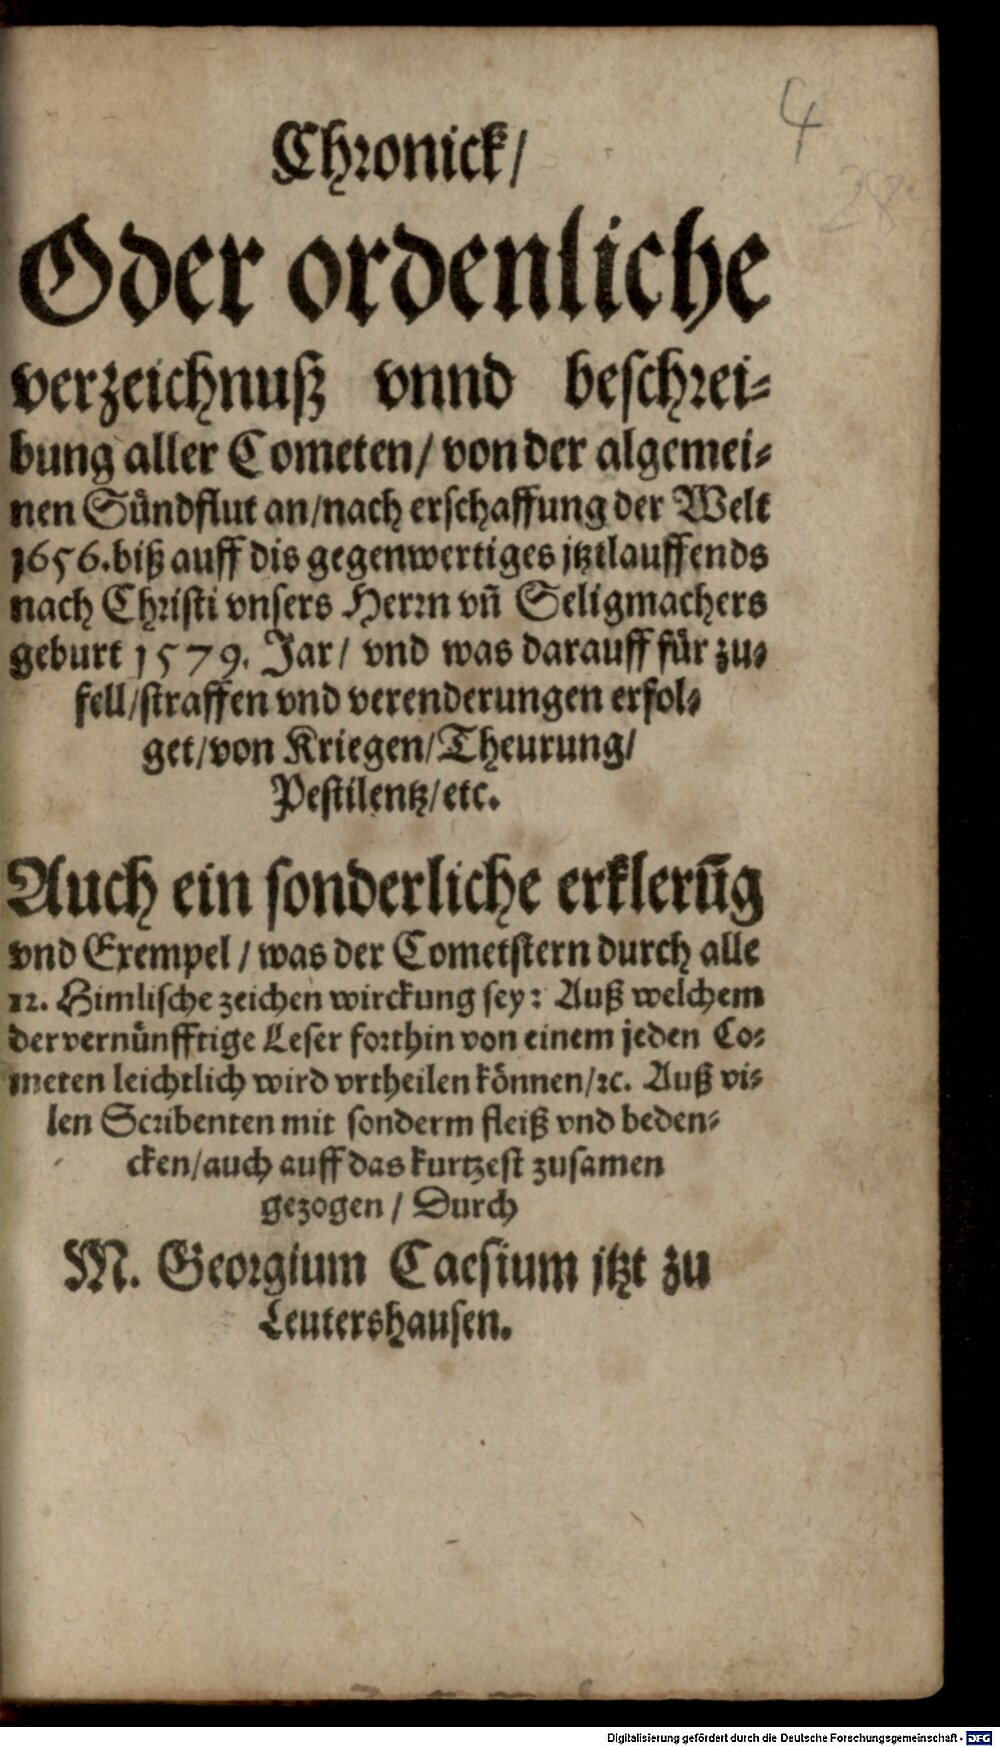 4
28
Chronick/
Oder ordenliche
verzeichnuß vnnd beschrei-
bung aller Cometen/ von der algemei-
nen Sündflut an/nach erschaffung der Welt
1656. biß auff dis gegenwertiges jtztlauffends
nach Christi vnsers Herrn vñ Seligmachers
geburt 1579. Jar/ vnd was darauff für zu-
fell/straffen vnd verenderungen erfol-
get/von Kriegen/Theurung/
Pestilentz/etc.
Auch ein sonderliche erklerūg
vnd Exempel/ was der Cometstern durch alle
12. Himlische zeichen wirckung sey: Auß welchem
der vernünfftige Leser forthin von einem jeden Co-
meten leichtlich wird vrtheilen können/ꝛc. Auß vi-
len Scribenten mit sonderm fleiß vnd beden-
cken/auch auff das kurtzest zusamen
gezogen/ Durch
M. Georgium Caesium jtzt zu
Leutershausen.
Digitalisierung gefördert durch die Deutsche Forschungsgemeinschaft - DFG